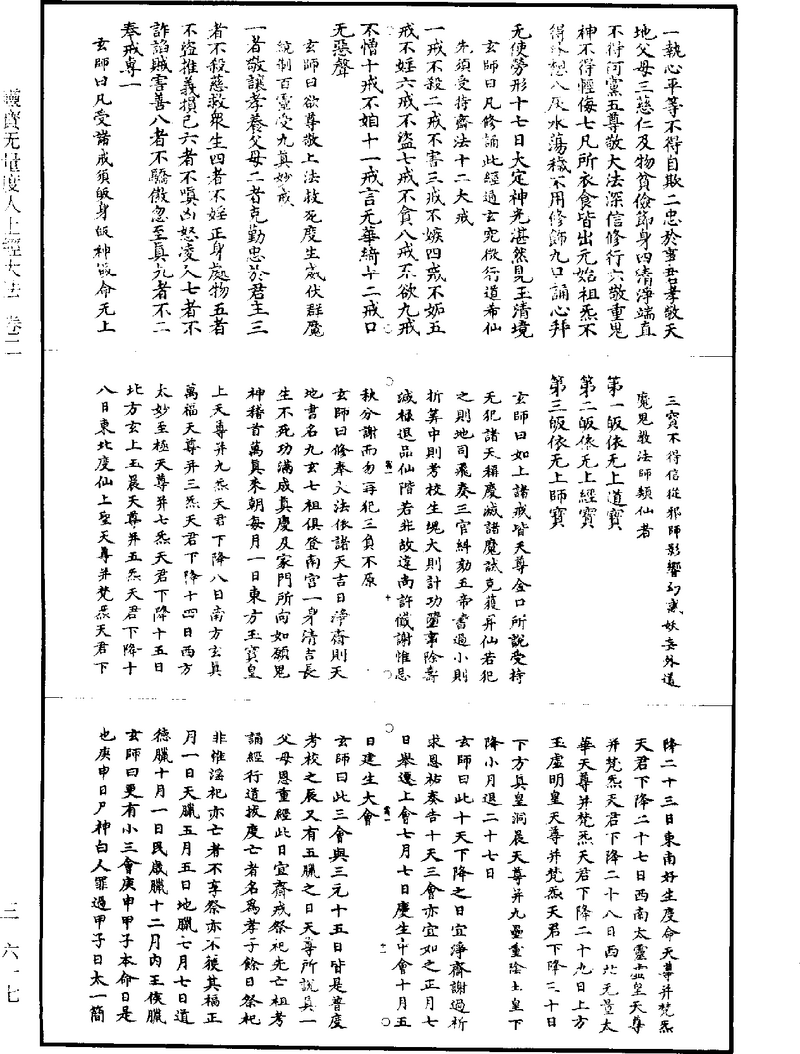 一執心平等不得自欺二忠於事君孝敬天
地父母三慈仁及物貧儉節身四清淨端直
不得阿黨五尊敬大法深信修行六敬重鬼
神不得輕侮七凡所衣食皆出元始祖炁不
得妄想八灰水蕩穢不用修飾九口誦心拜
无使勞形十七日大定神光湛然見玉清境
玄師曰凡修誦此經過玄究微行道希仙
先須受持齋法十二大戒
一戒不殺二戒不害三戒不嫉四戒不妬五
戒不婬六戒不盜七戒不貪八戒不欲九戒
不憎十戒不姤十一戒言无華綺十二戒口
无惡聲
玄師曰欲尊敬上法救死度生威伏群魔
統制百靈受九真妙戒
一者敬讓孝養父母二者克勤忠於君主三
者不殺慈救眾生四者不婬正身處物五者
不盜推義損己六者不嗔凶怒凌人七者不
詐諂賊害善八者不驕傲忽至真九者不二
奉戒專一
玄師曰凡受諸戒須皈身皈神皈命无上
三寶不得信從邪師影響幻惑妖妄外道
魔鬼教法師類仙者
第一皈依无上道寶
第二皈依无上經寶
第三皈依无上師寶
玄師曰如上諸戒皆天尊金口所說受持
无犯諸天稱慶滅諸魔試克獲昇仙若犯
之則地司飛奏三官糾劾五帝書過小則
折筭中則考校生魂大則計功墮事除壽
減祿退品仙階若非故違尚許懺謝惟忌
秋分謝而勿再犯三負不原
玄師曰修奉入法依諸天吉日淨齋則天
地書名九玄七祖俱登南宮一身清吉長
生不死功滿成真慶及家門所向如願鬼
神稽首萬真來朝每月一日東方玉寶皇
上天尊并九炁天君下降八日南方玄真
萬福天尊并三炁天君下降十四日西方
太妙至極天尊并七炁天君下降十五日
北方玄上玉晨天尊并五炁天君下降十
八日東北度仙上聖天尊并梵炁天君下
降二十三日東南好生度命天尊并梵炁
天君下降二十七日西南太靈虛皇天尊
并梵炁天君下降二十八日西北无量太
華天尊并梵炁天君下降二十九日上方
玉虛明皇天尊并梵炁天君下降三十日
下方真皇洞晨天尊并九壘重陰土皇下
降小月退二十七日
玄師曰此十天下降之日宜淨齋謝過祈
求恩祐奏告十天三會亦宜如之正月七
日舉遷上會七月七日慶生中會十月五
日建生大會
玄師曰此三會與三元十五日皆是普度
考校之辰又有五臘之日天尊所說真一
父母恩重經此日宜齋戒祭祀先亡祖考
誦經行道拔度亡者名為孝子餘日祭祀
非惟淫祀亦亡者不享祭亦不獲其福正
月一日天臘五月五日地臘七月七日道
德臘十月一日民歲臘十二月內王侯臘
玄師曰更有小三會庚申甲子本命日是
也庚申日尸神白人罪過甲子日太一簡
靈寶无量度人上經大法 卷二
三 六一七